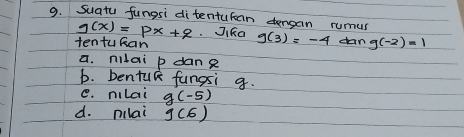 9. Suatu fungsi ditentukan dengan rumus
g(x) = px + q. Jika g(3) = -4 dan g(-2) = 1
tentukan
a. nilai p dan q
b. bentuk fungsi g.
c. nilai g(-5)
d. nilai g(6)